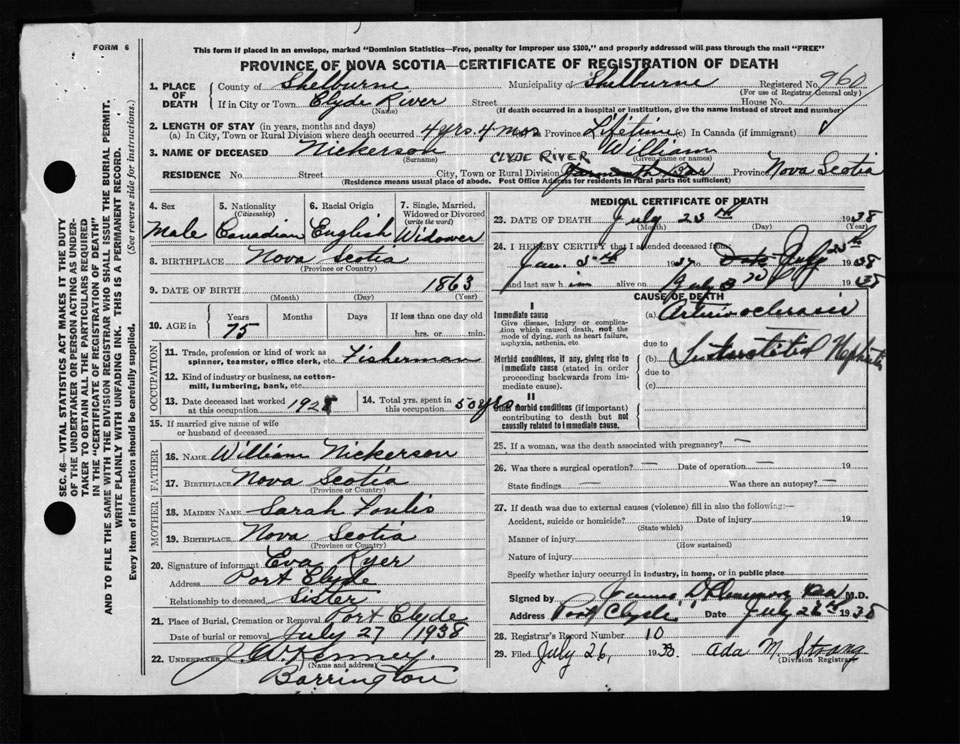 FORM 6
This form if placed in an envelope, marked "Dominion Statistics—Free, penalty for improper use $300," and properly addressed will pass through the mail "FREE"
PROVINCE OF NOVA SCOTIA—CERTIFICATE OF REGISTRATION OF DEATH
1. PLACE OF DEATH County of Shelburne Municipality of Shelburne Registered No. 960
(For use of Registrar General only)
If in City or Town Clyde River Street House No.
(Name) (If death occurred in a hospital or institution, give the name instead of street and number)
2. LENGTH OF STAY (in years, months and days)
(a) In City, Town or Rural Division where death occurred 4 yrs. 4 mos Province Lifetime (c) In Canada (if immigrant)
3. NAME OF DECEASED Nickerson William
(Surname) (Given name or names)
CLYDE RIVER
RESIDENCE No. Street (City, Town or Rural Division Yarmouth Bar Province Nova Scotia
(Residence means usual place of abode. Post Office Address for residents in rural parts not sufficient)
4. Sex 5. Nationality (Citizenship) 6. Racial Origin 7. Single, Married, Widowed or Divorced (write the word)
Male Canadian English Widower
8. BIRTHPLACE Nova Scotia
(Province or Country)
9. DATE OF BIRTH 1863
(Month) (Day) (Year)
10. AGE in Years Months Days If less than one day old
75 hrs. or min.
OCCUPATION
11. Trade, profession or kind of work as spinner, teamster, office clerk, etc. Fisherman
12. Kind of industry or business, as cotton-mill, lumbering, bank, etc.
13. Date deceased last worked at this occupation 1928 14. Total yrs. spent in this occupation 50 yrs
15. If married give name of wife or husband of deceased
FATHER
16. NAME William Nickerson
17. BIRTHPLACE Nova Scotia
(Province or Country)
MOTHER
18. MAIDEN NAME Sarah Foulis
19. BIRTHPLACE Nova Scotia
(Province or Country)
20. Signature of informant Eva Ryer
Address Port Clyde
Relationship to deceased Sister
21. Place of Burial, Cremation or Removal Port Clyde
Date of burial or removal July 27 1938
22. UNDERTAKER J. W. Kenney.
(Name and address)
Barrington
MEDICAL CERTIFICATE OF DEATH
23. DATE OF DEATH July 25th 1938
(Month) (Day) (Year)
24. I HEREBY CERTIFY that I attended deceased from:
Jan. 5th 1937 to Date July 25th 1938
and last saw him alive on July 1938
CAUSE OF DEATH
I
Immediate cause
Give disease, injury or complication which caused death, not the mode of dying, such as heart failure, asphyxia, asthenia, etc.
(a)
due to
Morbid conditions, if any, giving rise to immediate cause (stated in order proceeding backwards from immediate cause).
(b) Interstitial Nephritis
due to
(c)
II
Other morbid conditions (if important) contributing to death but not causally related to immediate cause.
25. If a woman, was the death associated with pregnancy? —
26. Was there a surgical operation? — Date of operation — 19
State findings — Was there an autopsy? —
27. If death was due to external causes (violence) fill in also the following:—
Accident, suicide or homicide? Date of injury 19
(State which)
Manner of injury
(How sustained)
Nature of injury
Specify whether injury occurred in industry, in home, or in public place
Signed by M.D.
Address Port Clyde Date July 26th 1938
28. Registrar's Record Number 10
29. Filed July 26, 1938. Ada M. Strang
(Division Registrar)
SEC. 46—VITAL STATISTICS ACT MAKES IT THE DUTY
OF THE UNDERTAKER OR PERSON ACTING AS UNDER-
TAKER TO OBTAIN ALL THE PARTICULARS REQUIRED
IN THE "CERTIFICATE OF REGISTRATION OF DEATH"
AND TO FILE THE SAME WITH THE DIVISION REGISTRAR WHO SHALL ISSUE THE BURIAL PERMIT.
WRITE PLAINLY WITH UNFADING INK. THIS IS A PERMANENT RECORD.
Every item of information should be carefully supplied. (See reverse side for instructions.)